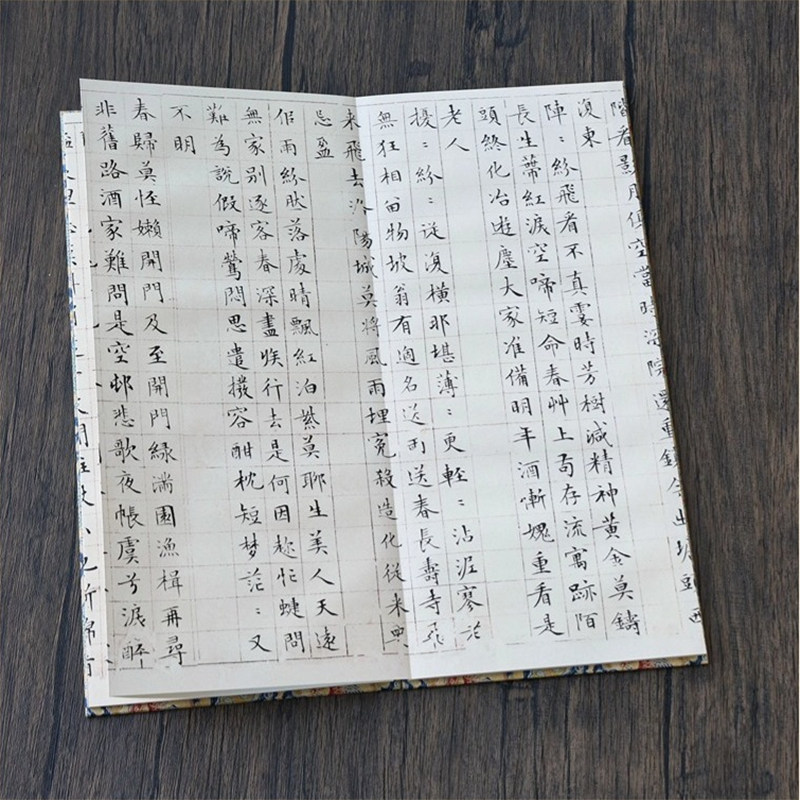 階看影月俱空當時深院還重鎖今出墻頭西
復東
陣〻紛飛看不真霎時芳樹減精神黃金莫鑄
長生蔕紅淚空啼短命春艸上苟存流寓跡陌
頭終化冶遊塵大家准備明年酒慚媿重看是
老人
擾〻紛〻從復橫那堪薄〻更輕〻沾泥寥老
無狂相留物坡翁有過名送雨送春長壽寺飛
來飛去洛陽城莫將風雨埋冤殺造化從来
忌盈
佀雨紛肰落處晴飄紅泊紫莫聊生美人天遠
無家別逐客春深盡族行去是何因趂忙蜨問
難為說假啼鶯悶思遣撥容酣枕短梦茫〻又
不明
春歸莫怪嬾開門及至開門緑滿園漁楫再尋
非舊路酒家難問是空邨悲歌夜帳虞兮淚醉